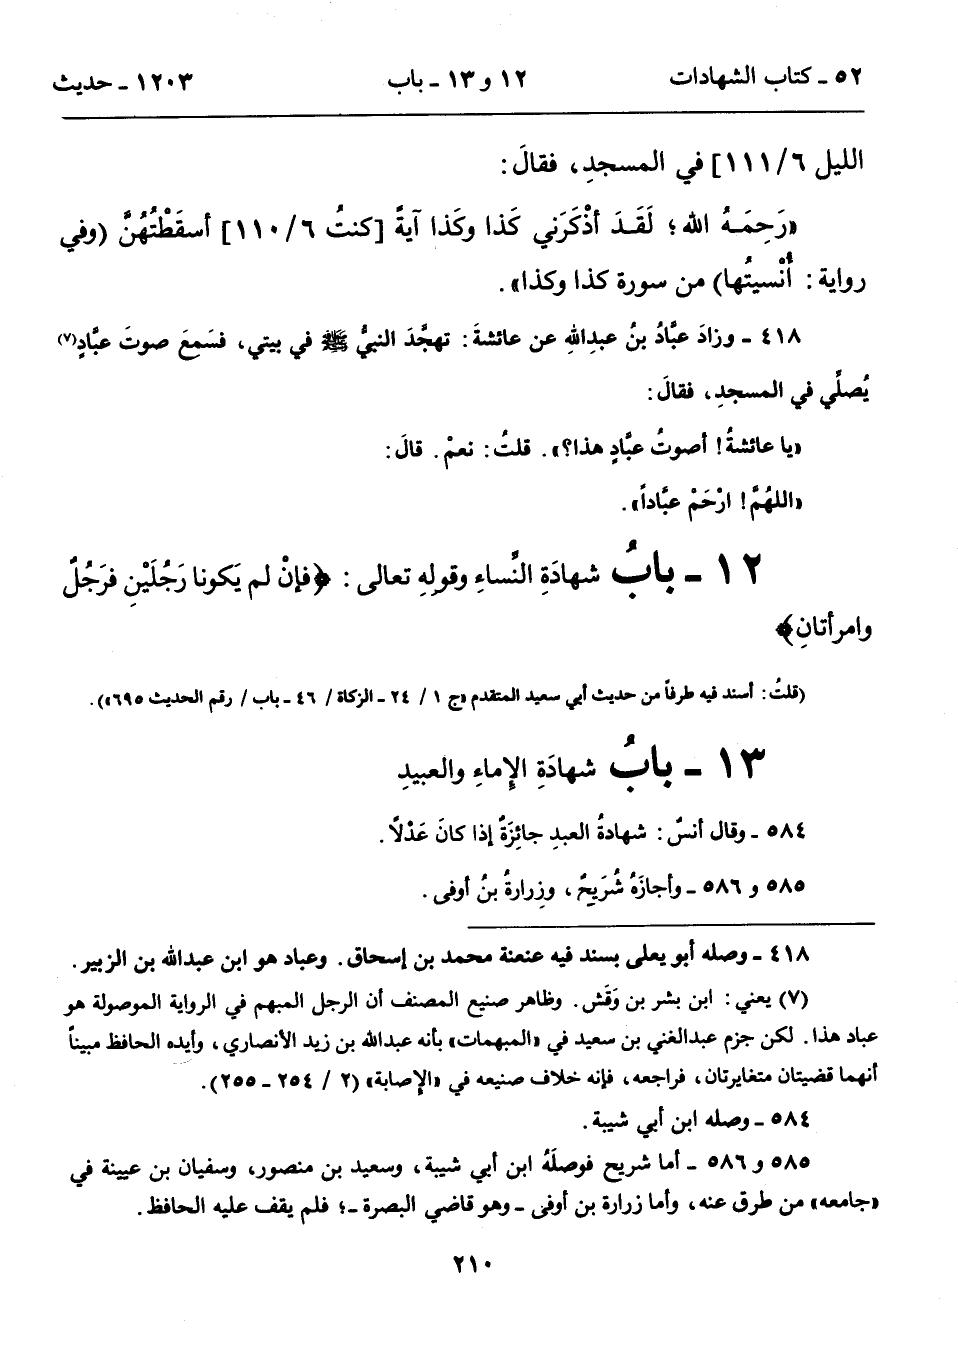 ٥٢ ـ كتاب الشهادات ١٢ و ١٣ ـ باب ١٢٠٣ ـ حديث
الليل ٦/ ١١١] في المسجدِ، فقالَ:
«رَحِمَـهُ الله؛ لَقَـدَ أذْكَرَني كَذا وكَذا آيةً [كنتُ ٦/ ١١٠] أسقَطْتُهُنَّ (وفي
رواية: أُنْسيتُها) من سورة كذا وكذا».
٤١٨ ـ وزادَ عبَّادُ بنُ عبدِاللهِ عن عائشةَ: تهجَّدَ النبيُّ ﷺ في بيتي، فسَمِعَ صوتَ عبَّادٍ(٧)
يُصلِّي في المسجدِ، فقالَ:
«يا عائشةُ! أصوتُ عبَّادٍ هذا؟». قلتُ: نعمْ. قالَ:
«اللهُمَّ! ارْحَمْ عبَّاداً».
١٢ ـ بابُ شهادَةِ النَّساءِ وقولِهِ تعالى: ﴿فإنْ لم يَكونا رَجُلَيْنِ فرَجُلٌ
وامرأتانِ﴾
(قلتُ: أسند فيه طرفاً من حديث أبي سعيد المتقدم «ج ١ / ٢٤ ـ الزكاة / ٤٦ ـ باب / رقم الحديث ٦٩٥»).
١٣ ـ بابُ شهادَةِ الإِماءِ والعبيدِ
٥٨٤ ـ وقال أنسٌ: شهادةُ العبدِ جائِزَةٌ إذا كانَ عَدْلاً.
٥٨٥ و ٥٨٦ ـ وأجازَهُ شُرَيحٌ، وزِرارةُ بنُ أوفى.
٤١٨ ـ وصله أبو يعلى بسند فيه عنعنة محمد بن إسحاق. وعباد هو ابن عبدالله بن الزبير.
(٧) يعني: ابن بشر بن وَقَش. وظاهر صنيع المصنف أن الرجل المبهم في الرواية الموصولة هو
عباد هذا. لكن جزم عبدالغني بن سعيد في «المبهمات» بأنه عبدالله بن زيد الأنصاري، وأيده الحافظ مبيناً
أنهما قضيتان متغايرتان، فراجعه، فإنه خلاف صنيعه في «الإصابة» (٢ / ٢٥٤ ـ ٢٥٥).
٥٨٤ ـ وصله ابن أبي شيبة.
٥٨٥ و ٥٨٦ ـ أما شريح فوصلَهُ ابن أبي شيبة، وسعيد بن منصور، وسفيان بن عيينة في
«جامعه» من طرق عنه، وأما زرارة بن أوفى ـ وهو قاضي البصرة ـ؛ فلم يقف عليه الحافظ.
٢١٠